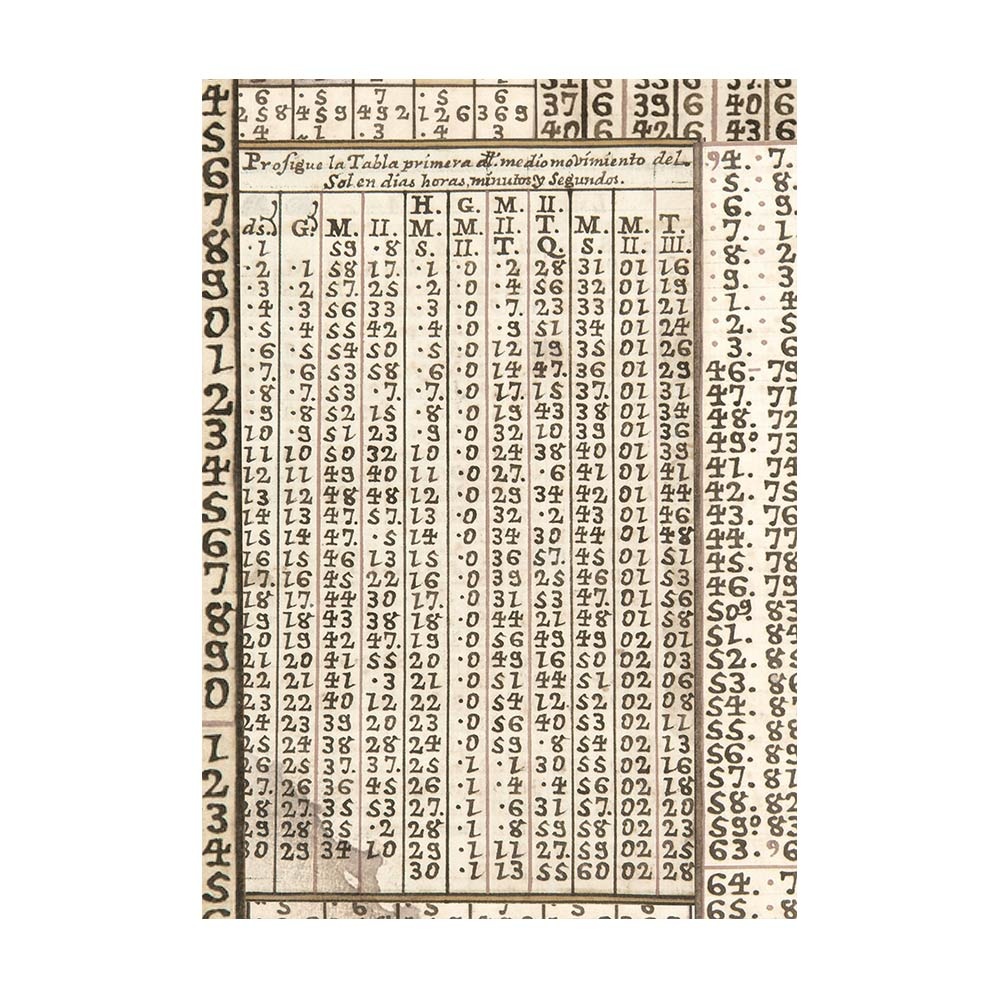 · 6 · S 7 · S 6
2 S 8 4 S 9 4 9 2 1 2 6 3 6 9
· 4 · 1 · 3 · 4 3
37 6 39 6 40 6
40 6 42 6 43 6
Prosigue la Tabla primera del medio movimiento del
Sol en dias horas, minutos y Segundos.
H. G. M. II.
ds. G. M. II. M. M. II. T. M. M. T.
1 59 · 8 S. II. T. Q. S. II. III.
· 2 · 1 58 17. · 1 · 0 · 2 28 31 01 16
· 3 · 2 57. 25 · 2 · 0 · 4 56 32 01 19
· 4 · 3 56 33 · 3 · 0 · 7. 23 33 01 21
· 5 · 4 55 42 · 4 · 0 · 9 51 34 01 24
· 6 · 5 54 50 · 5 · 0 12 19 35 01 26
· 7. · 6 53 58 · 6 · 0 14 47. 36 01 29
· 8 · 7. 53 · 7. · 7. · 0 17. 15 37. 01 31
· 9 · 8 52 15 · 8 · 0 19 43 38 01 34
10 · 9 51 23 · 9 · 0 32 10 39 01 36
11 10 50 32 10 · 0 24 38 40 01 39
12 11 49 40 11 · 0 27. · 6 41 01 41
13 12 48 48 12 · 0 29 34 42 01 44
14 13 47. 57. 13 · 0 32 · 2 43 01 46
15 14 47. · 5 14 · 0 34 30 44 01 48
16 15 46 13 15 · 0 36 57. 45 01 51
17. 16 45 22 16 · 0 39 25 46 01 53
18 17. 44 30 17. · 0 31 53 47. 01 56
19 18 43 38 18 · 0 44 21 48 01 58
20 19 42 47. 19 · 0 56 49 49 02 01
21 20 41 55 20 · 0 49 16 50 02 03
22 21 41 · 3 21 · 0 51 44 51 02 06
23 22 40 12 22 · 0 54 12 52 02 08
24 23 39 20 23 · 0 56 40 53 02 11
25 24 38 28 24 · 0 59 · 8 54 02 13
26 25 37. 37. 25 · 1 · 1 30 55 02 16
27. 26 36 45 26 · 1 · 4 · 4 56 02 18
28 27. 35 53 27. · 1 · 6 31 57. 02 20
29 28 35 · 2 28 · 1 · 8 59 58 02 23
30 29 34 10 29 · 1 11 27. 59 02 25
30 · 1 13 55 60 02 28
4
5
6
7
8
9
0
1
2
3
4
5
6
7
8
9
0
1
2
3
4
5
94. 7.
5. 8
6. 9
7. 1
8. 2
9. 3
1. 4
2. 5
3. 6
46. 79
47. 71
48. 72
49. 73
41. 74
42. 75
43. 76
44. 77
45. 78
46. 79
50. 83
51. 84
52. 85
53. 86
54. 87
55. 88
56. 89
57. 81
58. 82
59. 83
63. 96
64. 7
65. 8